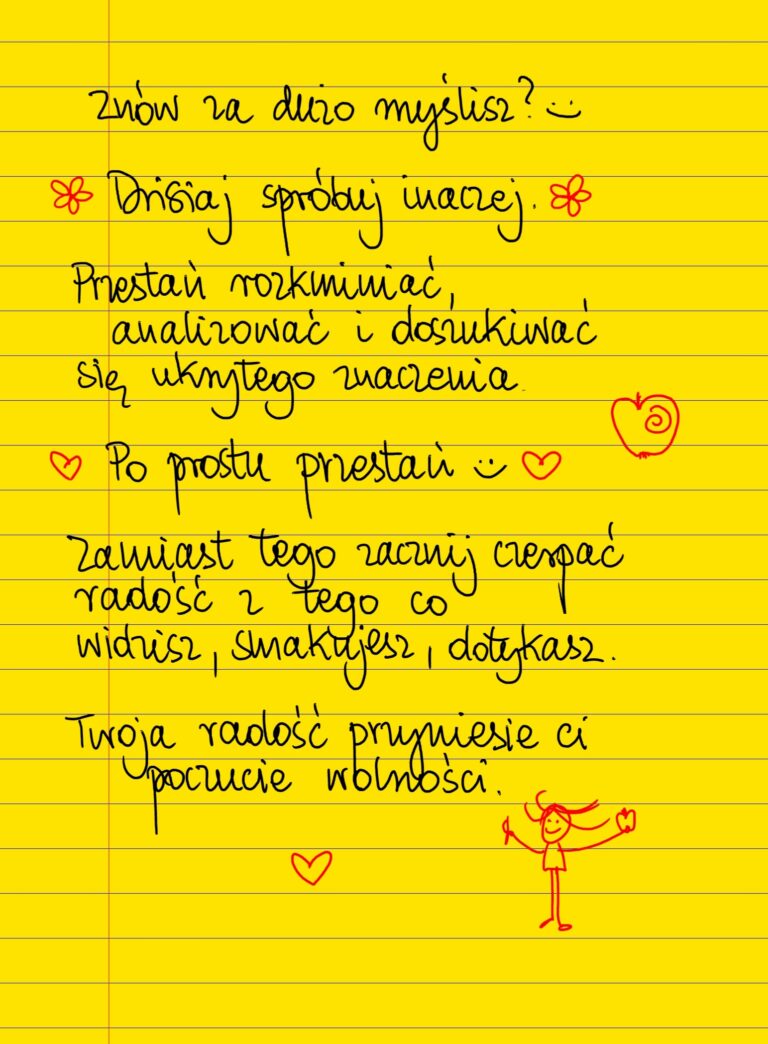 Znów za dużo myślisz? :)
Dzisiaj spróbuj inaczej.
Przestań rozkminiać,
analizować i doszukiwać
się ukrytego znaczenia.
Po prostu przestań :)
Zamiast tego zacznij czerpać
radość z tego co
widzisz, smakujesz, dotykasz.
Twoja radość przyniesie ci
poczucie wolności.